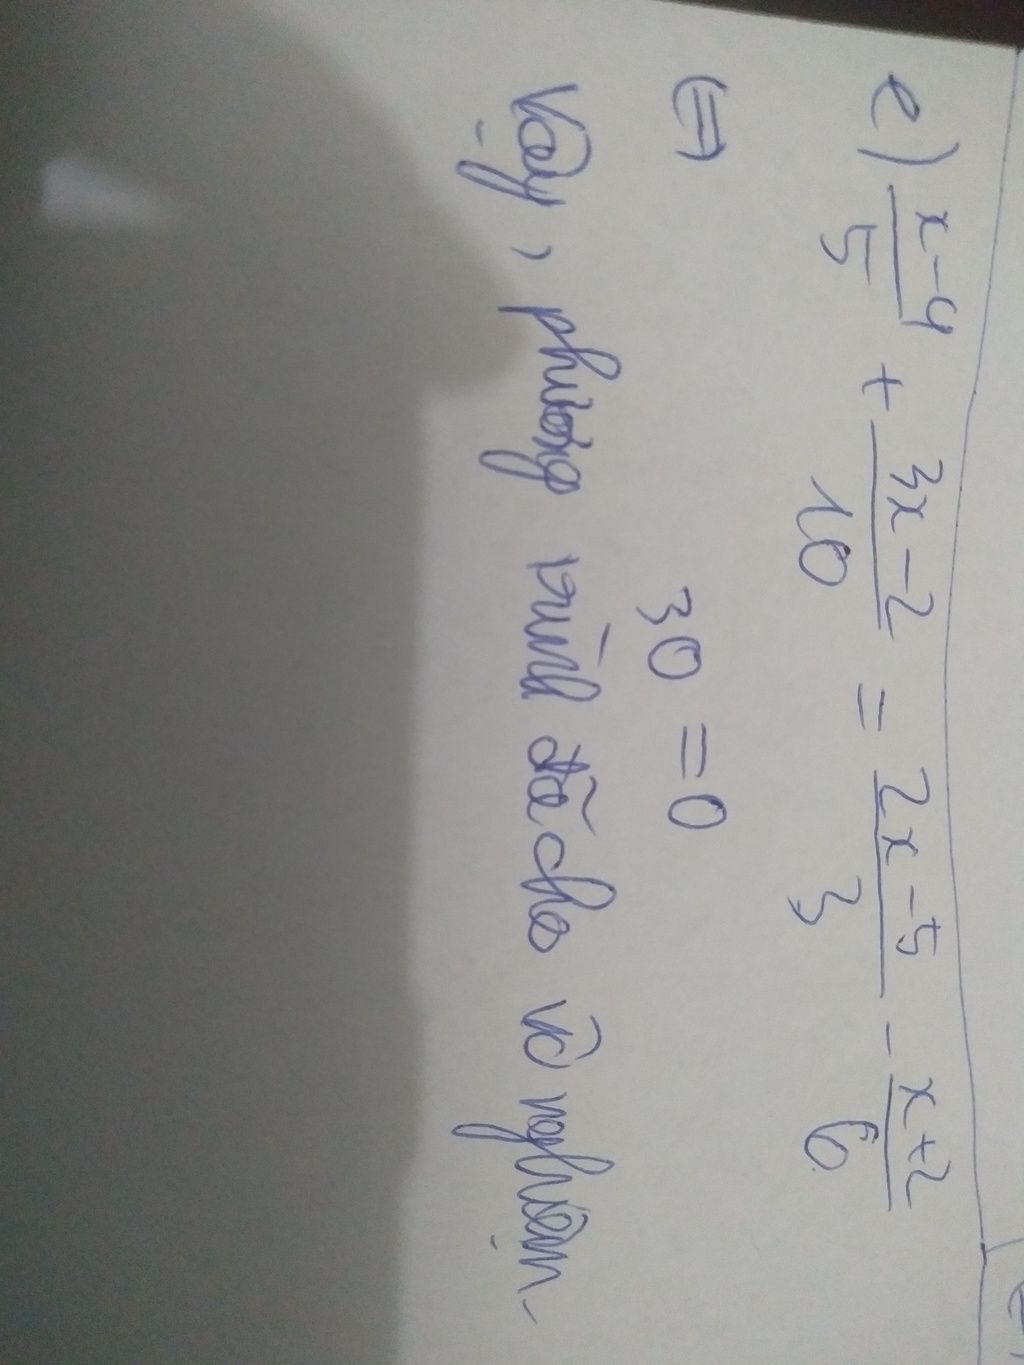 e) \frac{x-4}{5} + \frac{3x-2}{10} = \frac{2x-5}{3} - \frac{x+2}{6}
⇔ 30 = 0
Vậy, phương trình đã cho vô nghiệm.